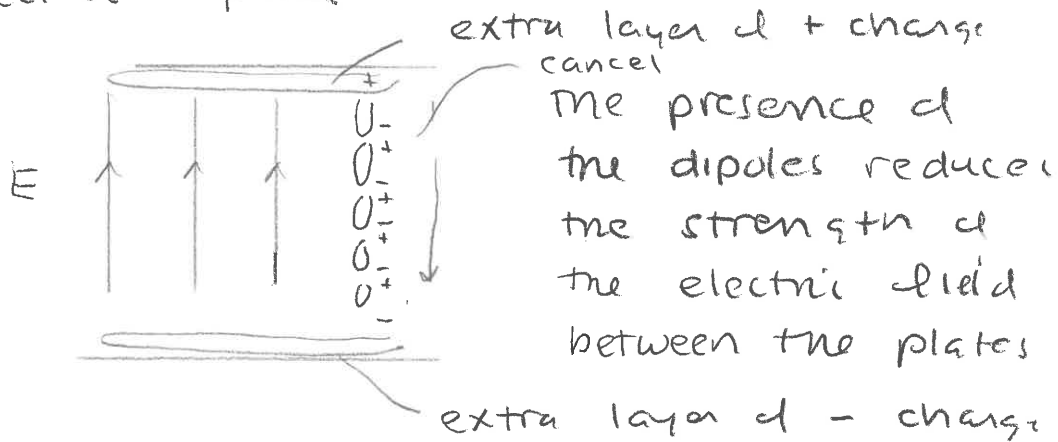 extra layer of + charge
cancel
The presence of
the dipoles reduces
the strength of
E
the electric field
between the plates
extra layer of - charge